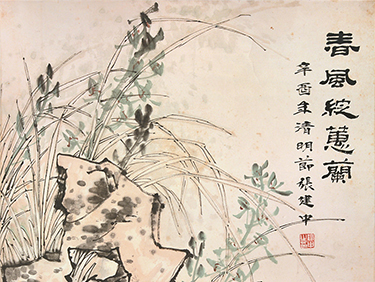 春風綻蕙蘭
辛酉年清明節張建中